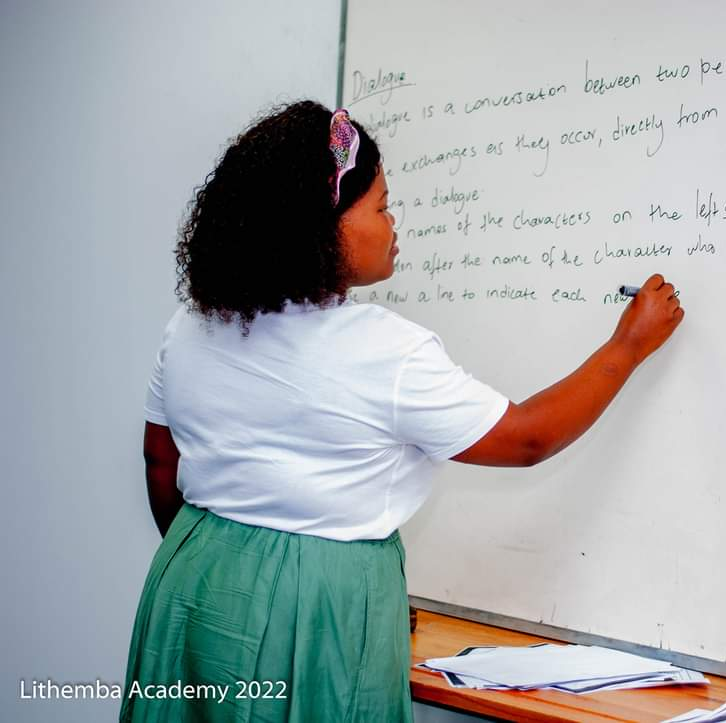 Dialogue
dialogue is a conversation between two pe
exchanges as they occur, directly from
ng a dialogue:
names of the characters on the left s
after the name of the character who
a new a line to indicate each new
Lithemba Academy 2022